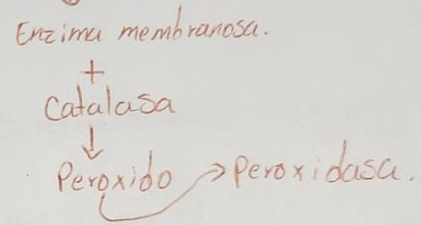 Enzima membranosa.
+
Catalasa
↓
Peroxido → peroxidasa.